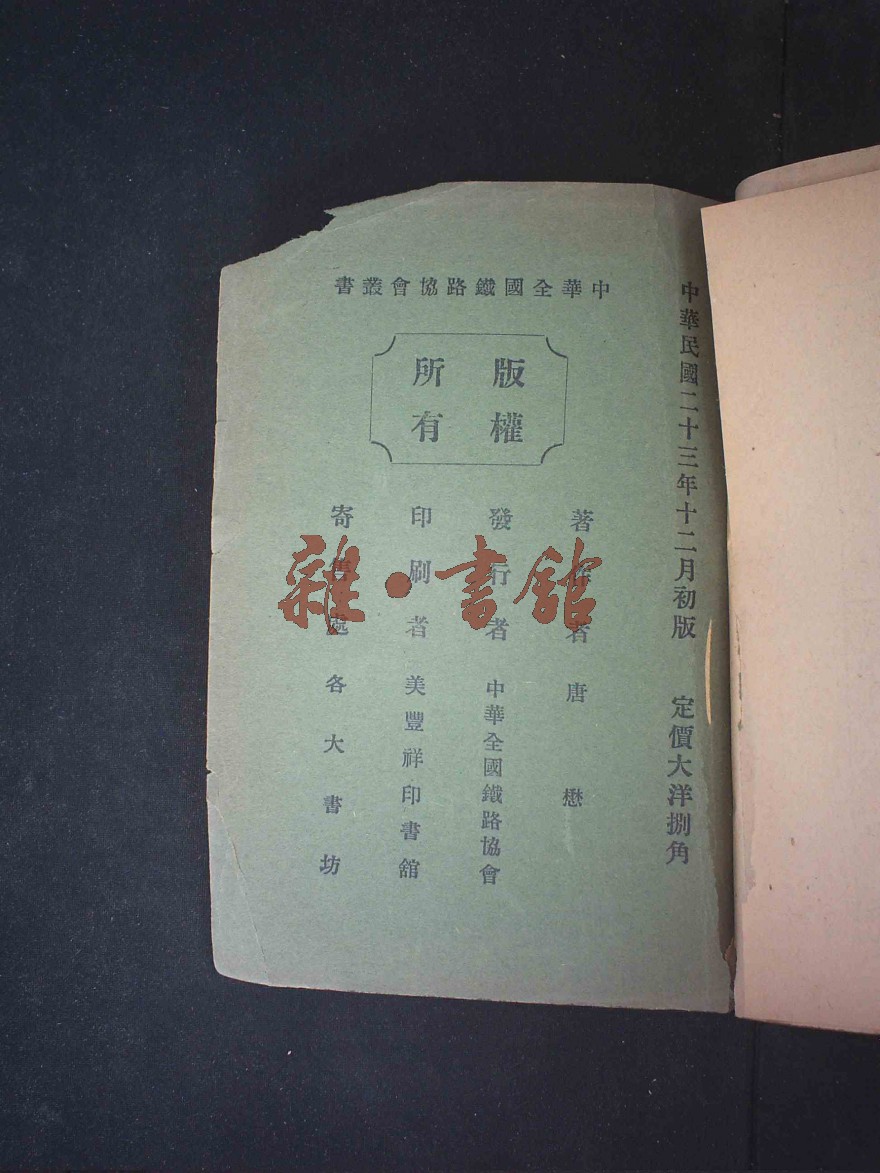 中華民國二十三年十二月初版 定價大洋捌角
中華全國鐵路協會叢書
版權
所有
著作者 唐懋
發行者 中華全國鐵路協會
印刷者 美豐祥印書舘
寄售處 各大書坊
雜·書館